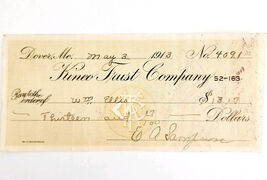 Dover, Me. May 3 1913 No. 4091
Kinco Trust Company 52-163
Pay to the order of Wm Ellis $13.17
Thirteen and 17/100 Dollars
E A Sampson